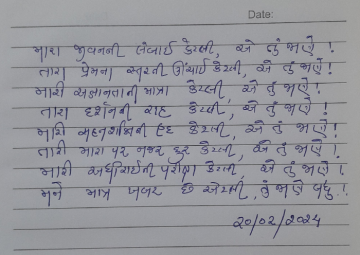 Date:
મારા જીવનની લંબાઈ કેટલી, એ તું જાણે!
તારા પ્રેમના સ્તરની ઊંચાઈ કેટલી, એ તું જાણે!
મારી અજ્ઞાનતાની માત્રા કેટલી, એ તું જાણે!
તારા દર્શનની રાહ કેટલી, એ તું જાણે!
મારી સહનશક્તિની હદ કેટલી, એ તું જાણે!
તારી મારા પર નજર દૂર કેટલી, એ તું જાણે!
મારી અધીરાઈની પરીક્ષા કેટલી, એ તું જાણે!
મને માત્ર ખબર છે એટલી, તું જાણે બધું.!
૨૦/૦૨/૨૦૨૪